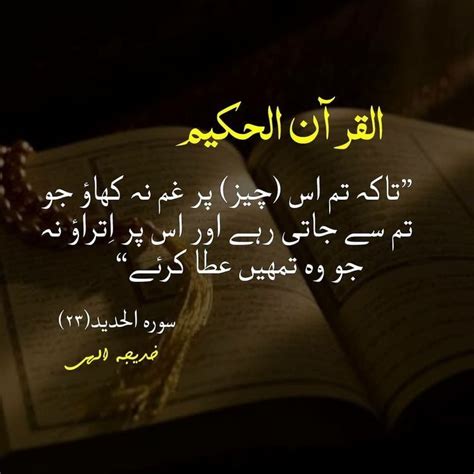 القرآن الحکیم
”تاکہ تم اس (چیز) پر غم نہ کھاؤ جو
تم سے جاتی رہے اور اس پر اِتراؤ نہ
جو وہ تمھیں عطا کرئے“
سورہ الحدید(۲۳)
خدیجہ الہی